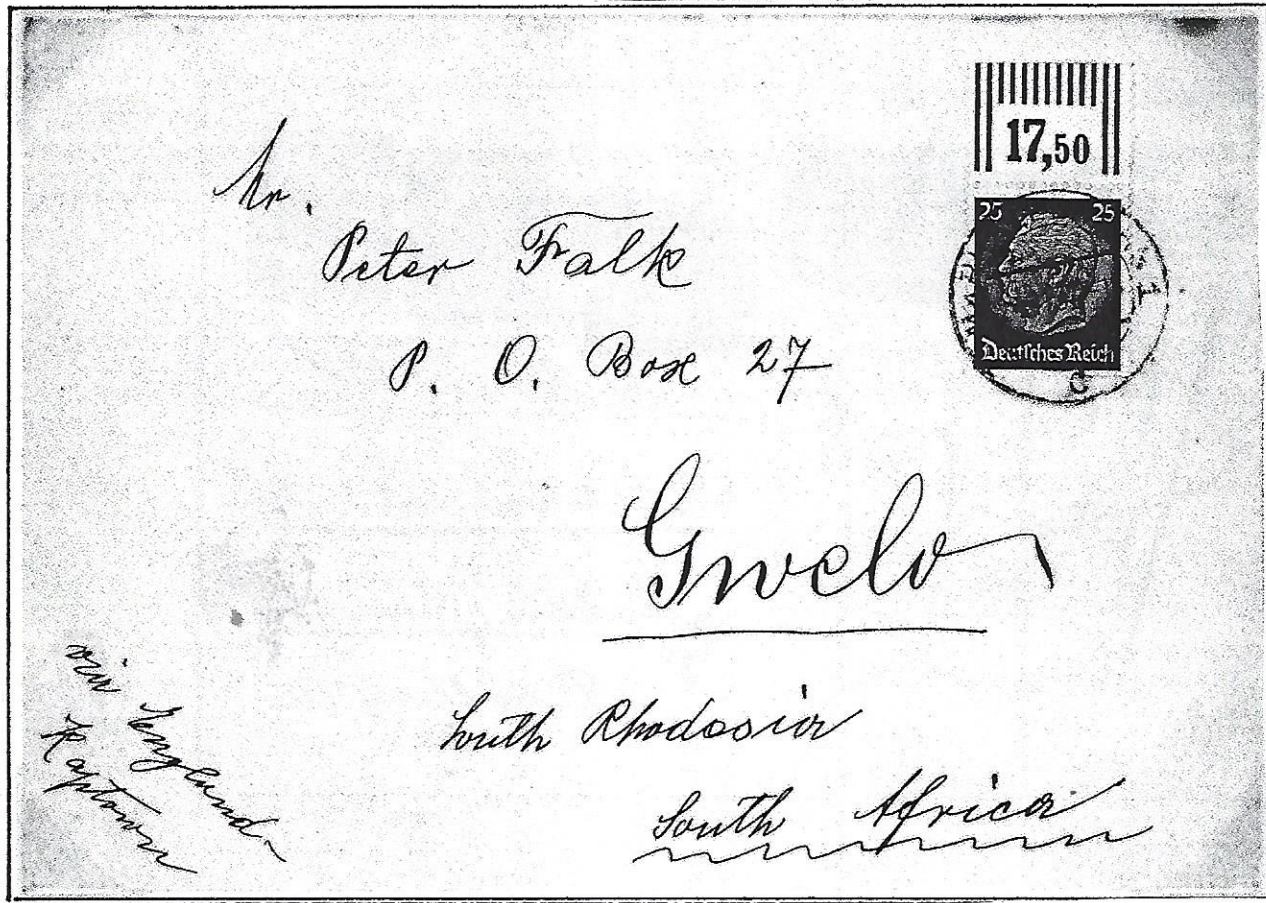 17,50
25 25
Deutsches Reich
Mr.
Peter Falk
P. O. Box 27
Gwelo
South Rhodesia
South Africa
via England-
Kaptown